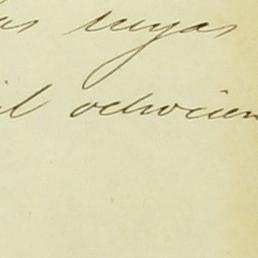 as suyas
il ochocien